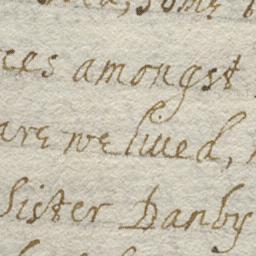 some
ces amongst
are we liued,
Sister Danby